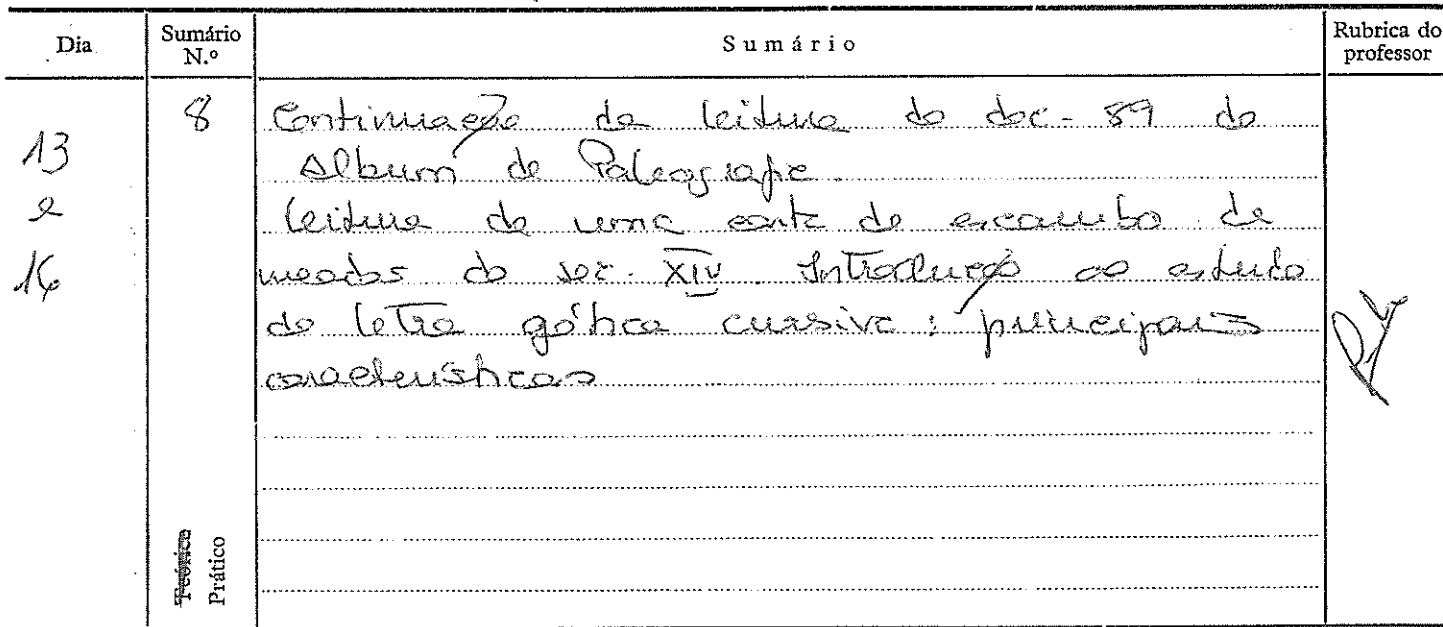 Dia
Sumário N.º
Sumário
Rubrica do professor
13
e
16
8
Continuação da leitura do doc. 89 do
Album de Paleografia.
Leitura de uma carta de escambo de
meados do sec. XIV. Introdução ao estudo
da letra gótica cursiva: principais
características
Teórico
Prático